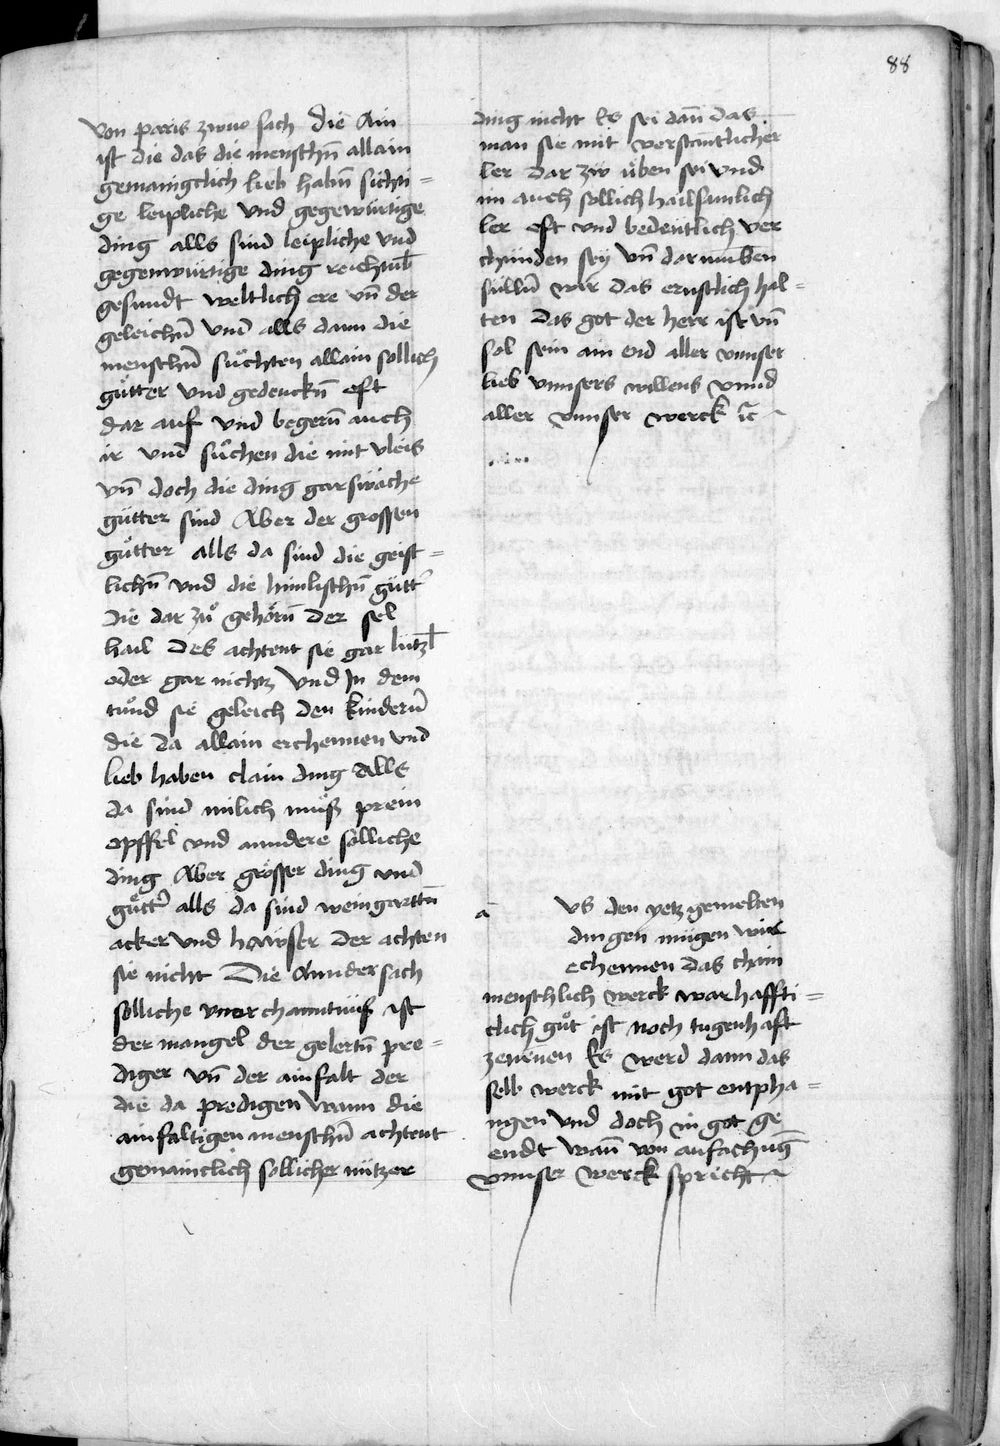 88
von paris zwuo sach die Ain
ist die das die menschn̄ allain
gemainigclich lieb habnn̄ sichti=
ge leipliche vnd gegewürtige
ding alls sind leipliche vnd
gegenwürtige ding reichtub̄
gesundt weltlich ere vn̄ der
geleichn̄ vnd alls dann die
menschn̄ süchten allain sollich
gütter vnd gedenckn̄ offt
dar auf vnd begern̄ auch
ir vnd süchen die mit vleis
vn̄ doch die ding gar swäche
gütter sind Aber der grossen
gütter alls da sind die geist=
lichn̄ vnd die himlischn̄ gütt̄
die dar zů gehörn̄ der sel
hail Des achtent sie gar lützl̄
oder gar nichtz Vnd In dem
tůnd sie geleich den kindern̄
die da allain erchennen vnd
lieb haben clain ding Alls
da sind milich můs prein
opffel vnd anndere solliche
ding Aber grösser ding vnd
gütt̄ alls da sind weingarttn̄
acker vnd hewser Der achten
sie nicht Die Annder sach
solliche vnerchanntnuß ist
der mangel der gelertn̄ pre=
diger vn̄ der ainfalt der
die da predigen Wann die
ainfaltigen menschn̄ achtent
gemainclich sollicher nützer
ding nicht Es sei dan̄ das
man sie mit verstentlicher
ler dar zw üben sei vnd
im auch sollich hailsamlich
ler oft vnd bedeütlich ver
chünden sey vn̄ darumben
sülln̄ wir das ernstlich hal=
ten Das got der herr ist vn̄
sol sein ain end aller vnnser
lieb vnnsers willens vnnd
aller vnnser werck ꝛc̄
a
vs den yetz gemelten
dingen mügen wir
echennen das chain
menschlich werck warhaffti=
clich gůt ist noch tugenhaft
zenennen Es werd dann das
selb werck mit got entpha=
ngen vnd doch in got ge
endt wan̄ von anfachuḡ
vnnser werck spricht